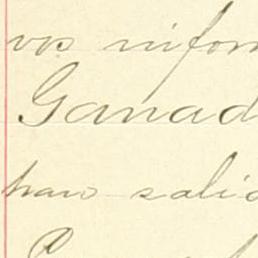 vos infor
Ganad
han salid